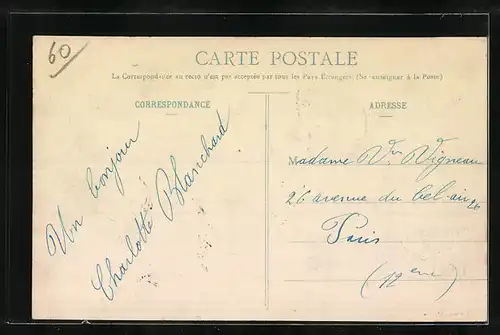 60
CARTE POSTALE
La Correspondance au recto n'est pas acceptée par tous les Pays Étrangers. (Se renseigner à la Poste)
CORRESPONDANCE
ADRESSE
Un bonjour
Charlotte Blanchard
Madame Vve Vigneau
26 avenue du bel-air 26
Paris
(12eme)